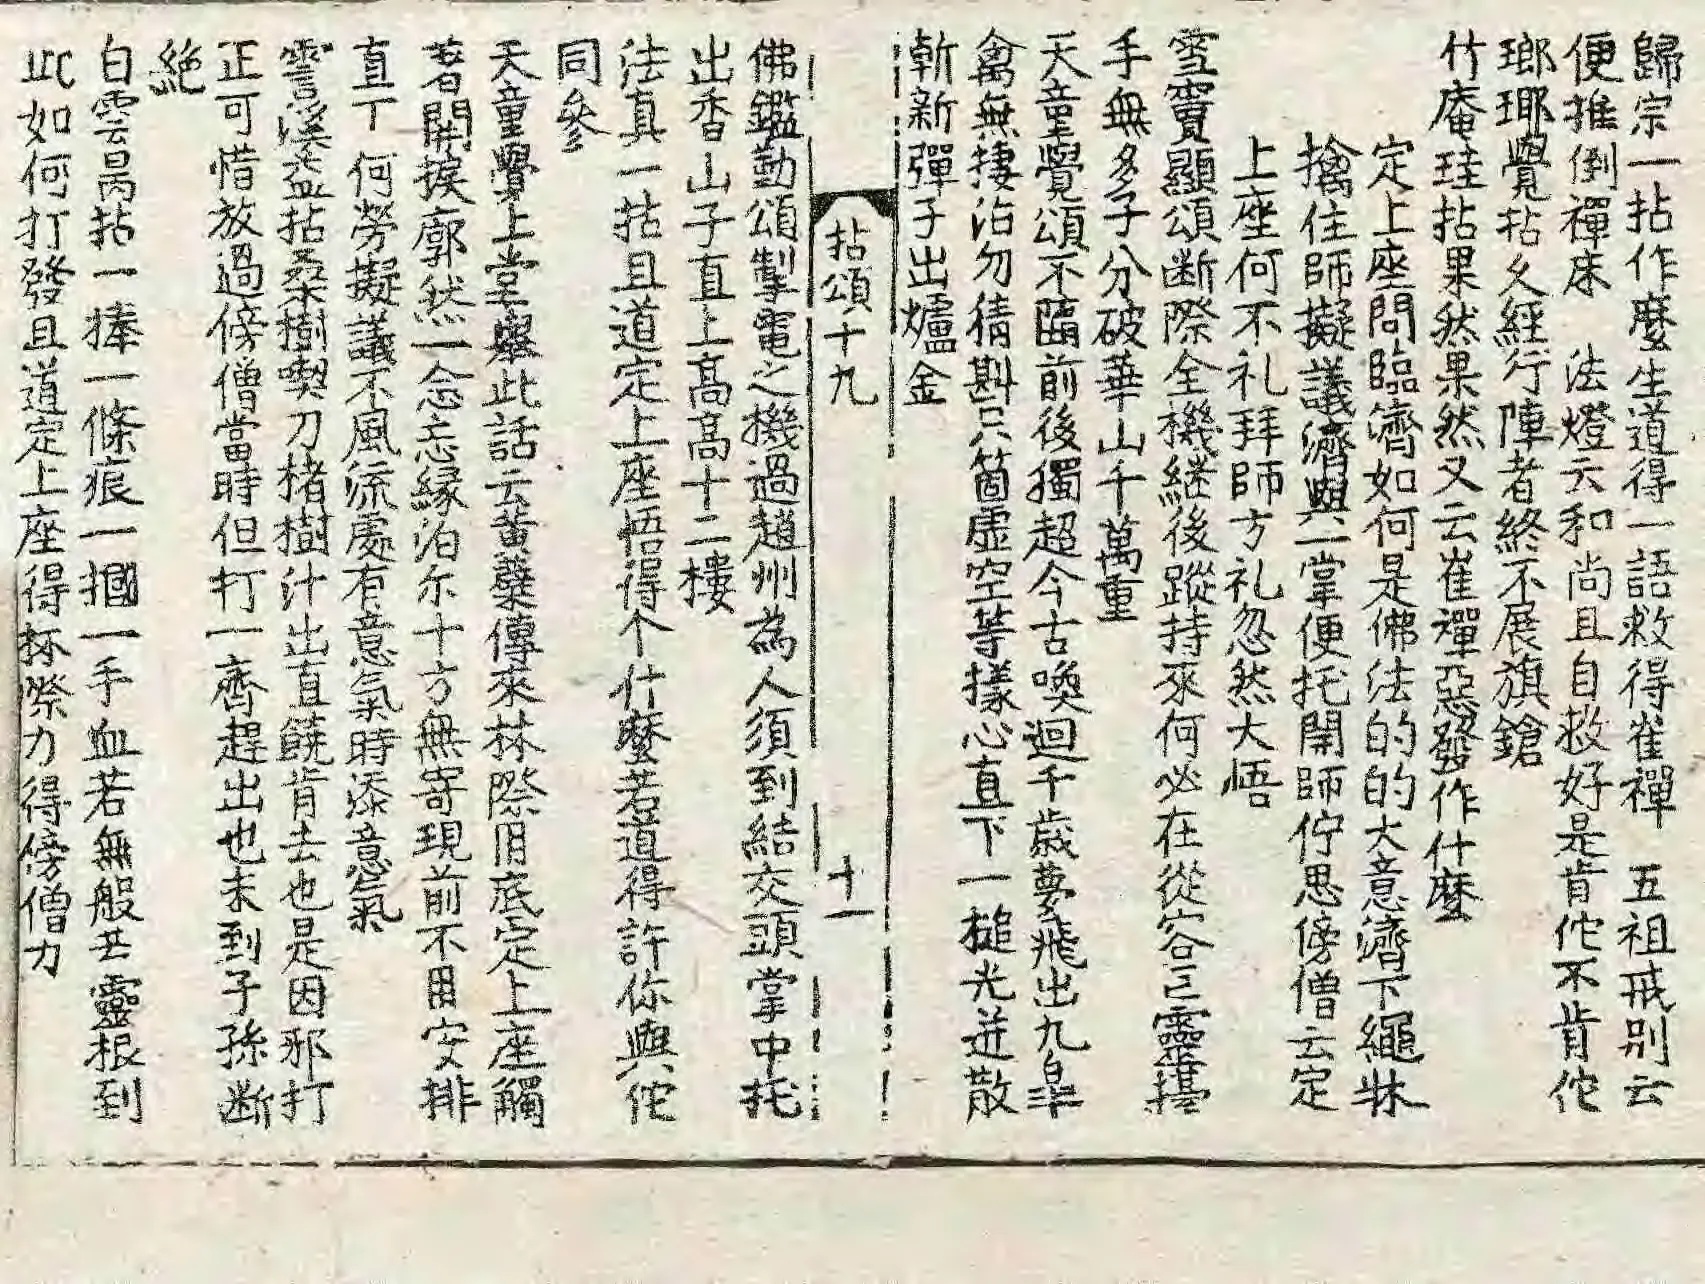 歸宗一拈作麽生道得一語救得崔禪　五祖戒別云
便推倒禪床　法燈云和尚且自救好是肯佗不肯佗
瑯琊覺拈久經行陣者終不展旗鎗
竹庵珪拈果然果然又云崔禪惡發作什麽
定上座問臨濟如何是佛法的的大意濟下繩牀
擒住師擬議濟與一掌便托開師佇思傍僧云定
上座何不礼拜師方礼忽然大悟
雪竇顯頌断際全機継後蹤持來何必在從容巨靈擡
手無多子分破華山千萬重
天童覺頌不臨前後獨超今古喚迴千歳夢飛出九皐
禽無棲泊勿猜斟只箇虛空等㨾心直下一槌光迸散
斬新彈子出爐金
拈頌十九　十一
佛鑑勤頌掣電之機過趙州為人須到結交頭掌中托
出香山子直上高高十二樓
法真一拈且道定上座悟得个什麽若道得許你與佗
同參
天童覺上堂舉此話云黃蘗傳來林際旧底定上座觸
著開捩廓然一念忘緣泊尔十方無寄現前不用安排
直下何勞擬議不風流處有意氣時添意氣
霅溪益拈桑樹喫刀楮樹汁出直饒肯去也是因邪打
正可惜放過傍僧當時但打一齊趕出也未到子孫断
絶
白雲昺拈一捧一條痕一摑一手血若無般若靈根到
此如何打發且道定上座得林際力得傍僧力